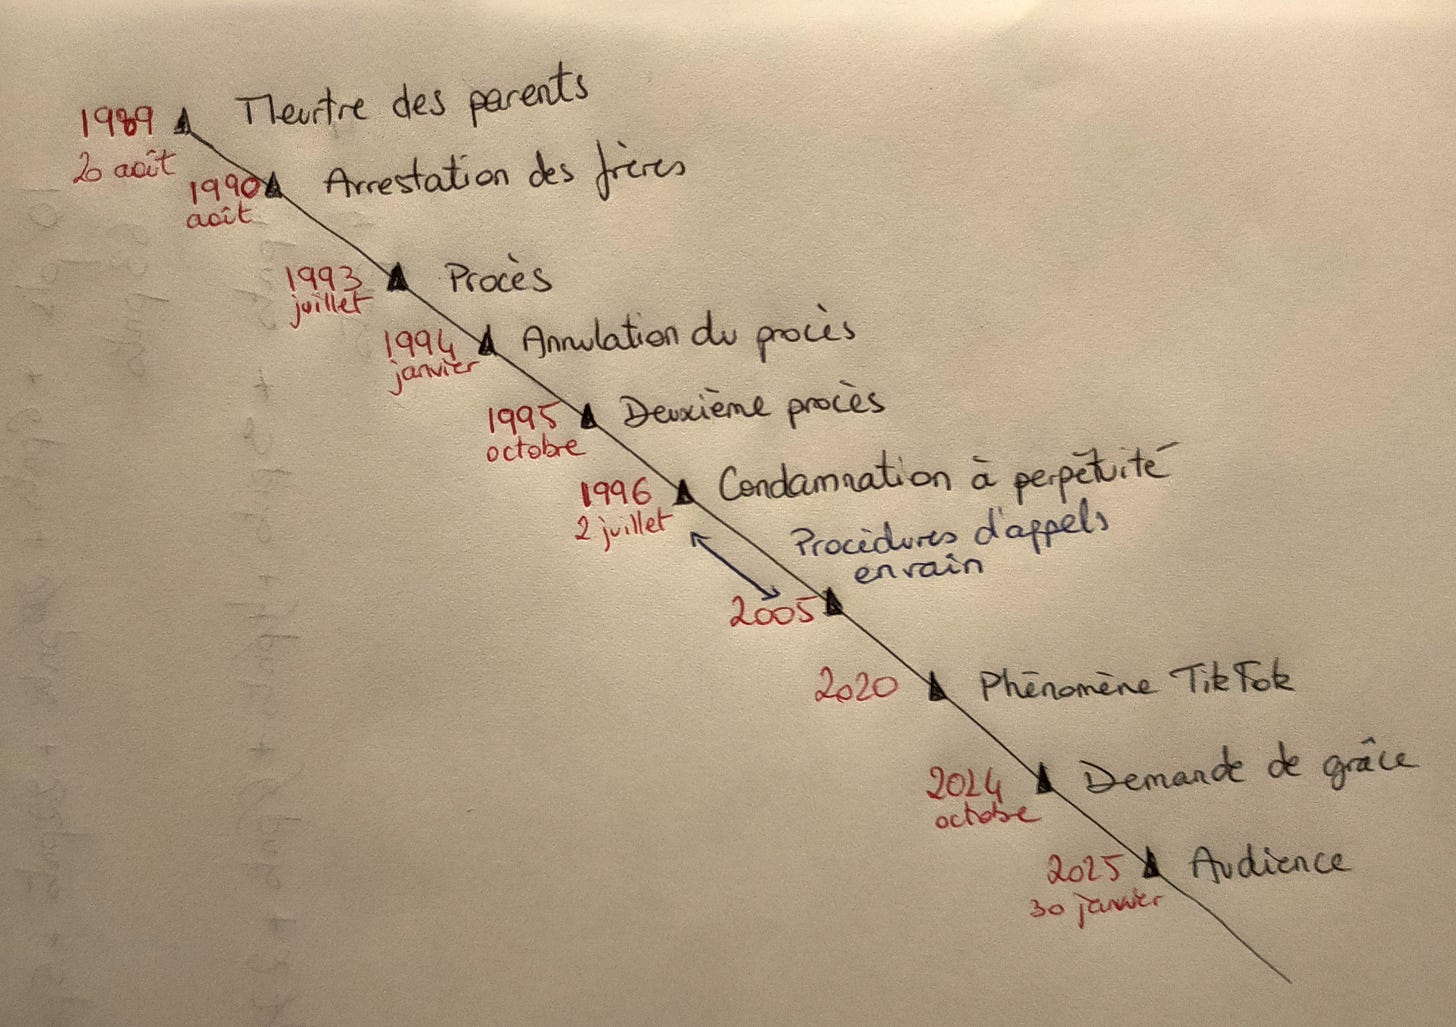 1989 Meurtre des parents
20 août
1990 Arrestation des frères
août
1993 Procès
juillet
1994 Annulation du procès
janvier
1995 Deuxième procès
octobre
1996 Condamnation à perpétuité
2 juillet
Procédures d'appels
en vain
2005
2020 Phénomène TikTok
2024 Demande de grâce
octobre
2025 Audience
30 janvier